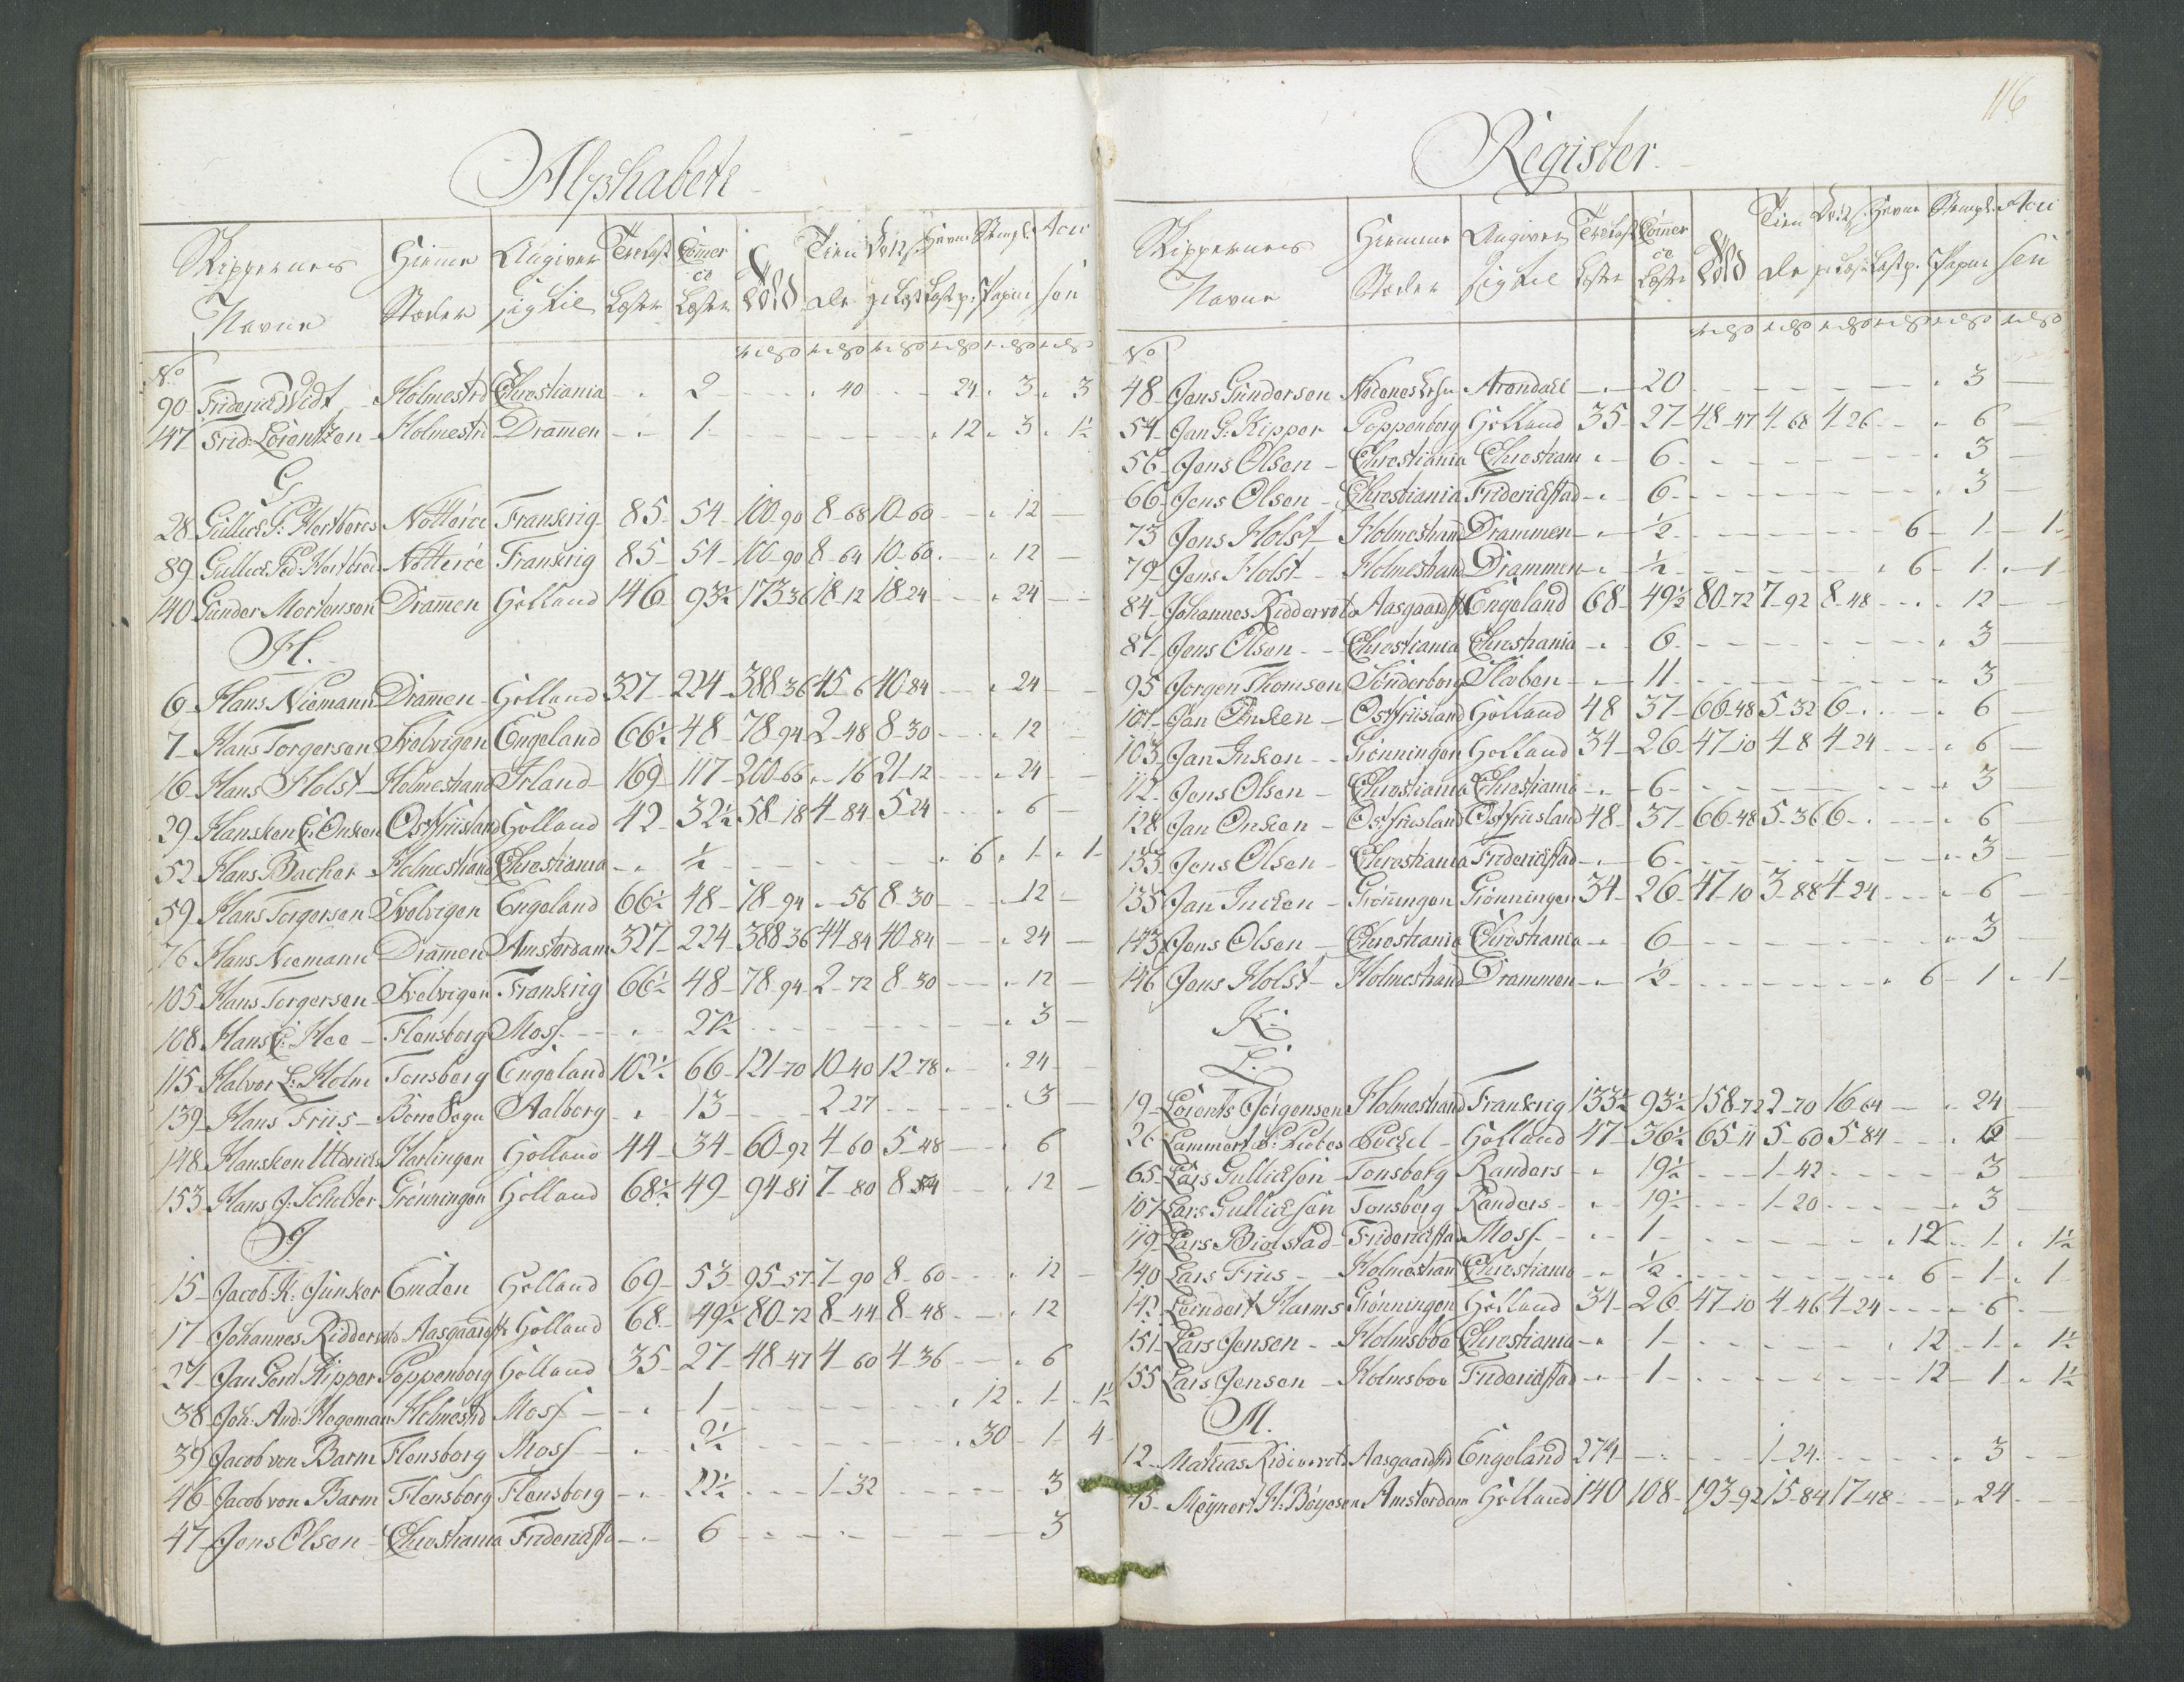 Alphabeth
Skippernes Navne Hiemme Stæder Angiver sig til Trælast Læster Commerce Læster Told Tiende Acci sen
No
90 Friderich Vidt Holmestrd Christiania - 2 - 40 - 24 - 3 - 3
147 Frid: Lorentzen Holmestr Dramen - 1 - 12 - 3 - 1½
G.
28 Gullich P: Nötteröe Frankrig 85 - 54 - 100-90 8-68 10-60 - 12
89 Gullich Ped: Nötteröe Frankrig 85 - 54 - 100-90 8-64 10-60 - 12
140 Gunder Mortensen Dramen Holland 146 - 93½ 173-36 18-12 18-24 - 24
H.
6 Hans Niemann Dramen Holland 327 - 224 - 388-36 45-6 40-84 - 24
7 Hans Torgersen Svelvigen Engeland 66½ 48 - 78-94 2-48 8-30 - 12
16 Hans Holst Holmestrand Irland 169 - 117 - 200-66 - 16 21-12 - 24
29 Hansken E: Onken Ostfriisland Holland 42 - 32½ 58-18 4-84 5-24 - 6
52 Hans Backer Holmestrand Christiania - ½ - 6 - 1 - 1
59 Hans Torgersen Svelvigen Engeland 66½ 48 - 78-94 - 56 8-30 - 12
76 Hans Niemann Dramen Amsterdam 327 - 224 - 388-36 44-84 40-84 - 24
105 Hans Torgersen Svelvigen Frankrig 66½ 48 - 78-94 2-72 8-30 - 12
108 Hans C: Hee Flensborg Moss - 27½ - 3
115 Halvor L: Holm Tonsberg Engeland 102½ 66 - 121-70 10-40 12-78 - 24
139 Hans Friis Borre Sogn Aalborg - 13 - 2-27 - 3
148 Hansken Harlingen Holland 44 - 34 - 60-92 4-60 5-48 - 6
153 Hans J: Schulter Grönningen Holland 68½ 49 - 94-81 7-80 8-54 - 12
J.
15 Jacob K: Junker Emden Holland 69 - 53 - 95-57 7-90 8-60 - 12
17 Johannes Riddervold Aasgaardst Holland 68 - 49½ 80-72 8-44 8-48 - 12
27 Jan Gerd Kipper Poppenborg Holland 35 - 27 - 48-47 4-60 4-36 - 6
38 Joh: And: Hegeman Holmestrd Moss - 1 - 12 - 1 - 1½
39 Jacob von Barm Flensborg Moss - 2½ - 30 - 1 - 4
46 Jacob von Barm Flensborg Flensborg - 22½ - 1-32 - 3
47 Jens Olsen Christiania Friderichstd - 6 - 3
116
Register
Skippernes Navne Hiemme Stæder Angiver sig til Trælast Læster Commerce Læster Told Tiende Acci sen
No
48 Jens Gundersen Arendall - 20 - 3
54 Jan G: Kipper Poppenborg Holland 35 - 27 - 48-47 4-68 4-26 - 6
56 Jens Olsen Christiania Christiani - 6 - 3
66 Jens Olsen Christiania Friderichstad - 6 - 3
73 Jens Holst Holmestrand Drammen - ½ - 6 - 1 - 1
79 Jens Holst Holmestrand Drammen - ½ - 6 - 1 - 1
84 Johannes Riddervold Aasgaardst Engeland 68 - 49½ 80-72 7-92 8-48 - 12
87 Jens Olsen Christiania Christiania - 6 - 3
95 Jorgen Thomsen Sönderborg - 11 - 3
101 Jan Onken Ostfriisland Holland 48 37 - 66-48 5-32 6 - 6
103 Jan Inken Grönningen Holland 34 - 26 - 47-10 4-8 4-24 - 6
112 Jens Olsen Christiania Christiania - 6 - 3
128 Jan Onken Ostfriisland Ostfriisland 48 - 37 - 66-48 5-36 6 - 6
133 Jens Olsen Christiania Friderichstad - 6 - 3
135 Jan Incken Grönningen Grönningen 34 - 26 - 47-10 3-88 4-24 - 6
143 Jens Olsen Christiania Christiania - 6 - 3
146 Jens Holst Holmestrand Drammen - ½ - 6 - 1 - 1
K:
L:
19 Lorents Jörgensen Holmestrand Frankrig 133½ 93½ 158-72 2-70 16-64 - 24
26 Lammert P: Holland 47 - 36½ 65-11 5-60 5-84 - 12
65 Lars Gullichsön Tonsberg Randers - 19½ - 1-42 - 3
107 Lars Gullichsön Tonsberg Randers - 19½ - 1-20 - 3
119 Lars Biolstad Friderichsta Moss - 1 - 12 - 1 - 1½
140 Lars Friis Holmestran Christiania - ½ - 6 - 1 - 1
142 Leendert Harms Grönningen Holland 34 - 26 - 47-10 4-46 4-24 - 6
151 Lars Jensen Holmsboe Christiania - 1 - 12 - 1 - 1½
155 Lars Jensen Holmsboe Friderichstad - 1 - 12 - 1 - 1½
M.
12 Mathias Aasgaardstd Engeland 274 - 1-24 - 3
45 Meynert H: Böyesen Amsterdam Holland 140 108 - 193-92 15-84 17-48 - 24